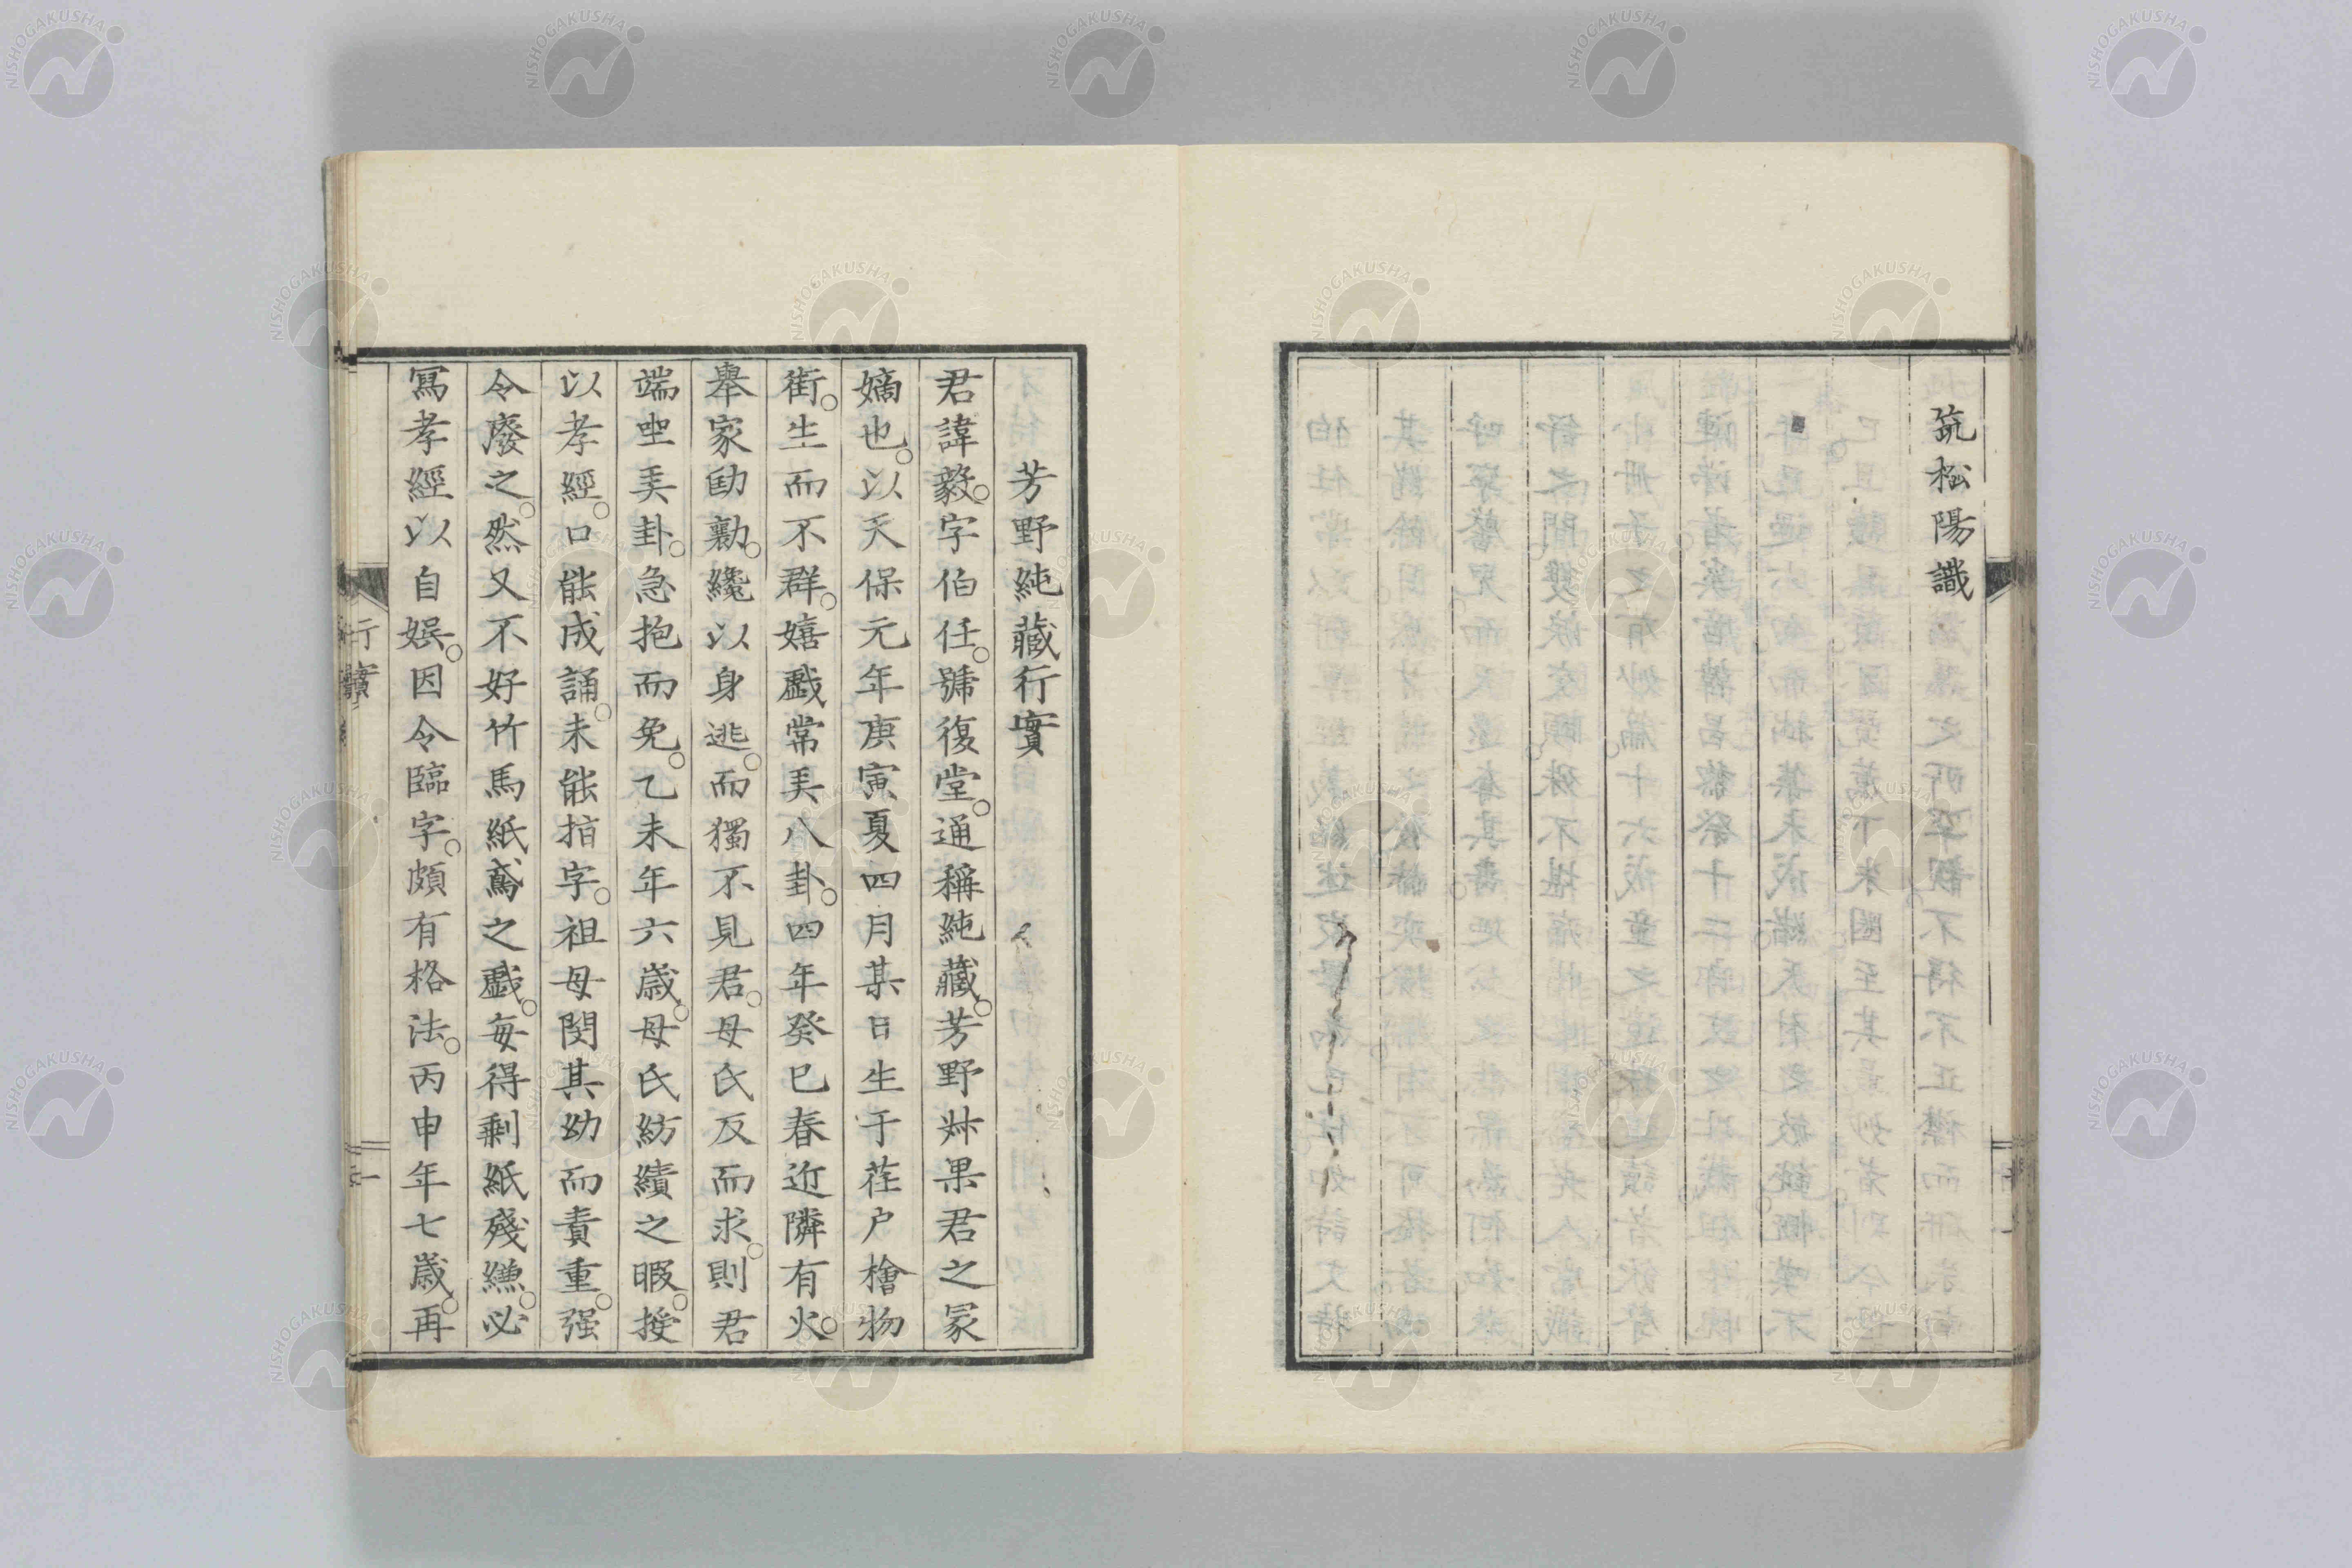 筑松陽識
芳野純藏行實
君諱毅。字伯任。號復堂。通稱純藏。芳野叔果君之冢
嫡也。以天保元年庚寅夏四月某日生于荏戸檜物
街。生而不群。嬉戲常美八卦。四年癸巳春近隣有火。
舉家劻勷。纔以身逃。而獨不見君。母氏反而求。則君
端坐美卦。急抱而免。乙未年六歲。母氏紡績之暇。授
以孝經。口能成誦。未能指字。祖母閔其幼而責重。强
令廢之。然又不好竹馬紙鳶之戲。每得剩紙殘縑。必
寫孝經以自娛。因令臨字。頗有格法。丙申年七歲。再
行實
一
NISHOGAKUSHA